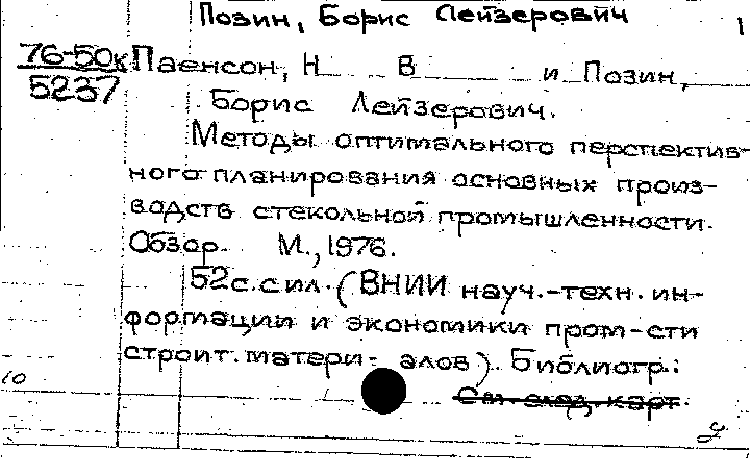 Позин, Борис Лейзерович 1
76-50к Паенсон, Н В и Позин,
5237
Борис Лейзерович.
Методы оптимального перспектив-
ного планирования основных произ-
водств стекольной промышленности.
Обзор. М., 1976.
52 с. с ил. (ВНИИ науч.-техн. ин-
формации и экономики пром-сти
строит. матери- алов). Библиогр.:
10
См. след. карт.